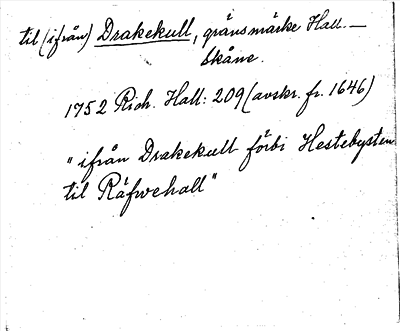 til (ifrån) Drakekull, gränsmärke Hall. –
Skåne.
1752 Rich. Hall: 209 (avskr. fr. 1646)
"ifrån Drakekull förbi Hestebysten
til Räfwehall"